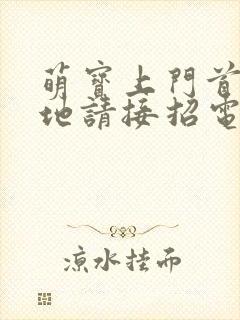 萌寶上門首
地請接招電
涼水挂而